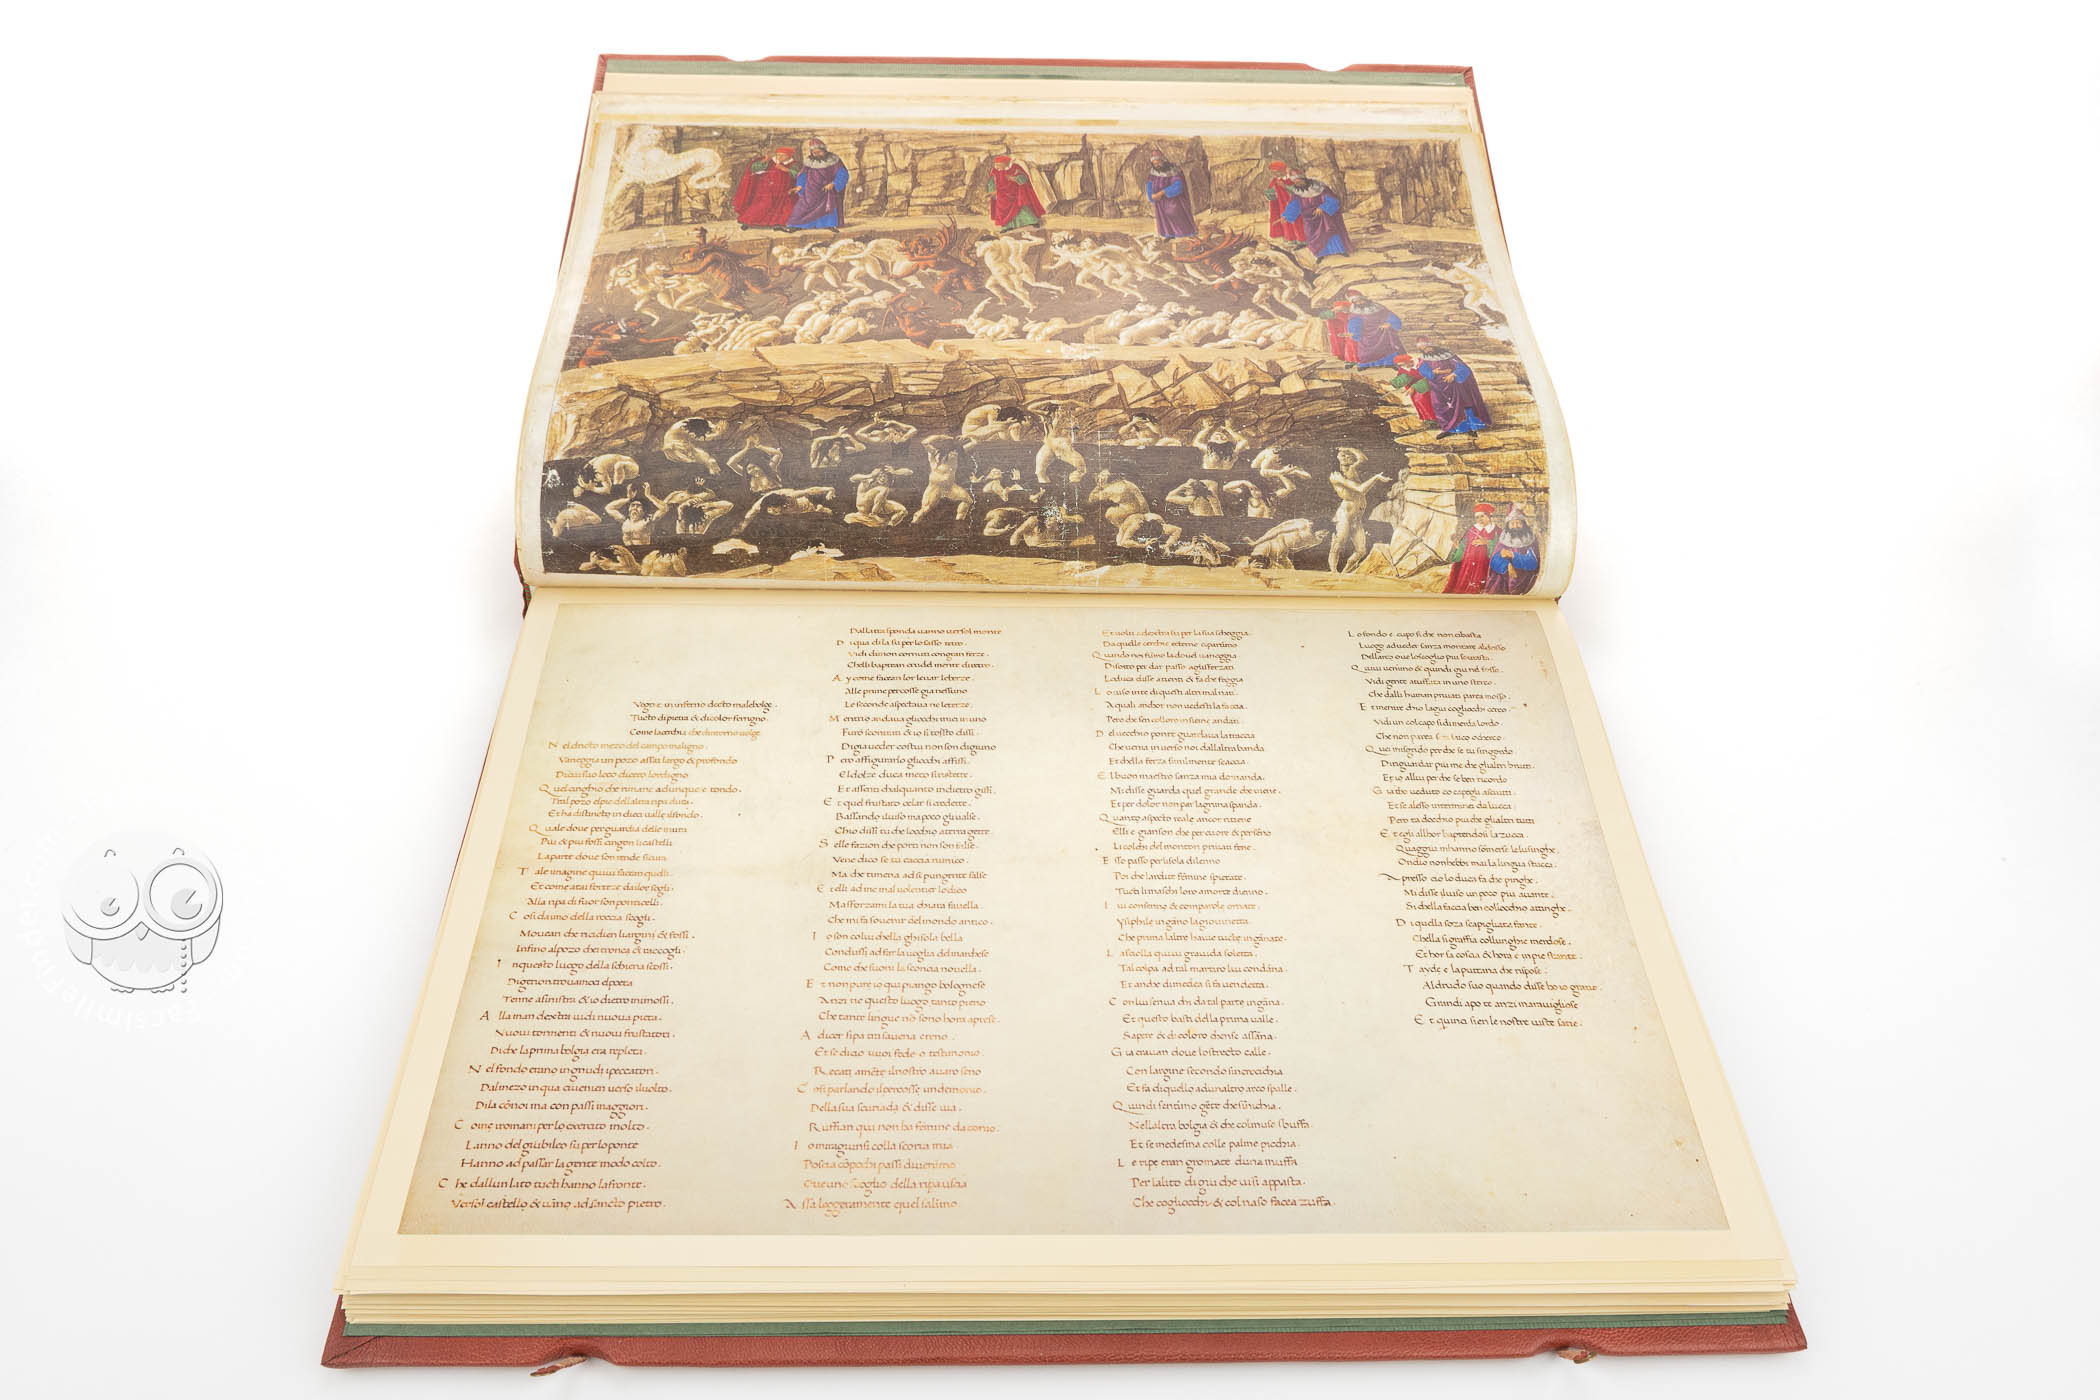 Vogo e in inferno decto malebolge .
Tucto di pietra & di color ferrigno .
Come la cerchia che dintorno volge
Nel dricto mezo del campo maligno .
Vaneggia un pozo assai largo & profondo
Di cui suo loco dicero lordigno
Quel cinghio che rimane adunque e tondo .
Tral pozo elpie dellalta ripa dura .
Et ha distincto in dieci valle ilfondo .
Quale dove per guardia delle mura
Piu & piu fossi cingon li castelli
La parte dove son rende sicura
Tale imagine quivi facean quelli .
Et come a tai forteze da lor sogli .
Alla ripa di fuor son ponticelli .
Cosi da imo della roccia scogli .
Movean che ricidien liargini & fossi .
Infino alpozo che i tronca & raccogli .
In questo luogo della schiena scossi .
Di gerion trovamoci elpoeta
Tenne a sinistra & io dietro mi mossi .
Alla man dextra vidi nuova pieta .
Nuovi tormenti & nuovi frustatori .
Di che la prima bolgia era repleta .
Nel fondo erano ignudi i peccatori .
Dal mezo in qua ci venien verso ilvolto .
Di la cōnoi ma con passi maggiori .
Come i romani per lo exercito molto .
Lanno del giubileo su per lo ponte
Hanno ad passar la gente modo colto .
Che dallun lato tucti hanno la fronte .
Verso l castello & vāno ad sancto pietro .
Dallaltra sponda vanno verso l monte
Di qua di la su per lo sasso tetro .
Vidi dimon cornuti con gran ferze .
Che li battean crudel mente di retro .
Ay come facean lor levar le berze .
Alle prime percosse gia nessuno
Le seconde aspectava ne le terze .
Mentrio andava gliocchi miei in uno
Furo scontrati & io si tosto dissi .
Di gia veder costui non son digiuno
Pero affigurarlo gliocchi affissi .
El dolze duca meco si ristette .
Et assenti chalquanto indietro gissi .
Et quel frustato celar si credette .
Bassando ilviso ma poco gli valse .
Chio dissi tu che locchio a terra gette .
Se lle fazion che porti non son false .
Venedico se tu caccianimico .
Ma che ti mena ad si pungente salse
Et elli ad me mal volentier lo dico
Ma sforzami la tua chiara favella .
Che mi fa sovenir del mondo antico .
Io son colui che lla ghisola bella
Condussi ad far la voglia del marchese
Come che suoni la sconcia novella .
Et non pure io qui piango bolognese
Anzi ne questo luogo tanto pieno
Che tante lingue nō sono hora aprese .
A dicer sipa tra savena e reno .
Et se di cio vuoi fede o testimonio .
Recati amēte ilnostro avaro seno
Cosi parlando ilpercosse un demonio .
Della sua scuriada & disse via .
Ruffian qui non ha femine da conio .
Io mi ragiunsi colla scorta mia
Poscia cō pochi passi divenimo
Ove uno scoglio della ripa uscia
Assa leggeramente quel salimo
Et volti a dextra su per la sua scheggia .
Da quelle cerchie eterne ci partimo
Quando noi fūmo la dovel vaneggia
Di sotto per dar passo agli sferzati
Lo duca disse attienti & fa che feggia
Lo viso in te di questi altri mal nati .
A quali anchor non vedesti la faccia .
Pero che son con noi insieme andati .
Del vecchio ponte guardava la traccia
Che venia in verso noi dallaltra banda
Et che lla ferza similmente scaccia .
El buon maestro sanza mia domanda .
Mi disse guarda quel grande che viene .
Et per dolor non par lagrima spanda .
Quanto aspecto reale ancor ritiene
Elli e gianson che per cuore & per sēno
Li colchi del monton privati fene .
Esso passo per lisola di lenno
Poi che lardite fēmine spietate .
Tucti li maschi loro a morte dienno .
Ivi con senno & con parole ornate .
Ysiphile ingāno la giovinetta .
Che prima laltre havie tucte ingānate .
Lasciolla quivi gravida soletta .
Tal colpa ad tal martiro lui condāna .
Et anche di medea si fa vendetta .
Con lui sen va chi da tal parte ingāna .
Et questo basti della prima valle .
Sapere & di coloro chense assāna .
Gia eravan dove lo strecto calle .
Con largine secondo sincrocichia
Et fa di quello ad unaltro arco spalle .
Quindi sentimo gēte che si nichia .
Nellaltra bolgia & che col muso sbuffa
Et se medesma colle palme picchia .
Le ripe eran gromate duna muffa
Per lalito di giu che vi si appasta .
Che cogliocchi & col naso facea zuffa .
Lo fondo e cupo si che non ci basta
Luogo ad veder sanza montare al dosso
Dellarco ove lo scoglio piu sovrasta .
Quivi venimo & quindi giu nel fosso .
Vidi gente attuffata in uno sterco .
Che dalli human privati parea mosso .
Et mentre chio lagiu cogliocchi cerco .
Vidi un col capo si di merda lordo
Che non parea sera laico o cherco .
Quei mi sgrido per che se tu singordo
Di riguardar piu me che glialtri brutti .
Et io allui per che se ben ricordo
Gia tho veduto co capegli asciutti .
Et se alesso interminei da lucca :
Pero ta docchio piu che glialtri tutti
Et egli allhor baptendosi la zucca .
Quaggiu mhanno sōmerso le lusinghe .
Ondio non hebbi mai la lingua stucca .
Apresso cio lo duca fa che pinghe .
Mi disse ilviso un poco piu avante .
Si che lla faccia ben collocchio attinghe .
Di quella soza scapigliata fante .
Che lla si graffia collunghie merdose .
Et hor sa coscia & hora e in pie stante .
Tayde e la puttana che rispose .
Al drudo suo quando disse ho io gratie .
Grandi apo te anzi maravigliose
Et quinci sien le nostre viste satie .